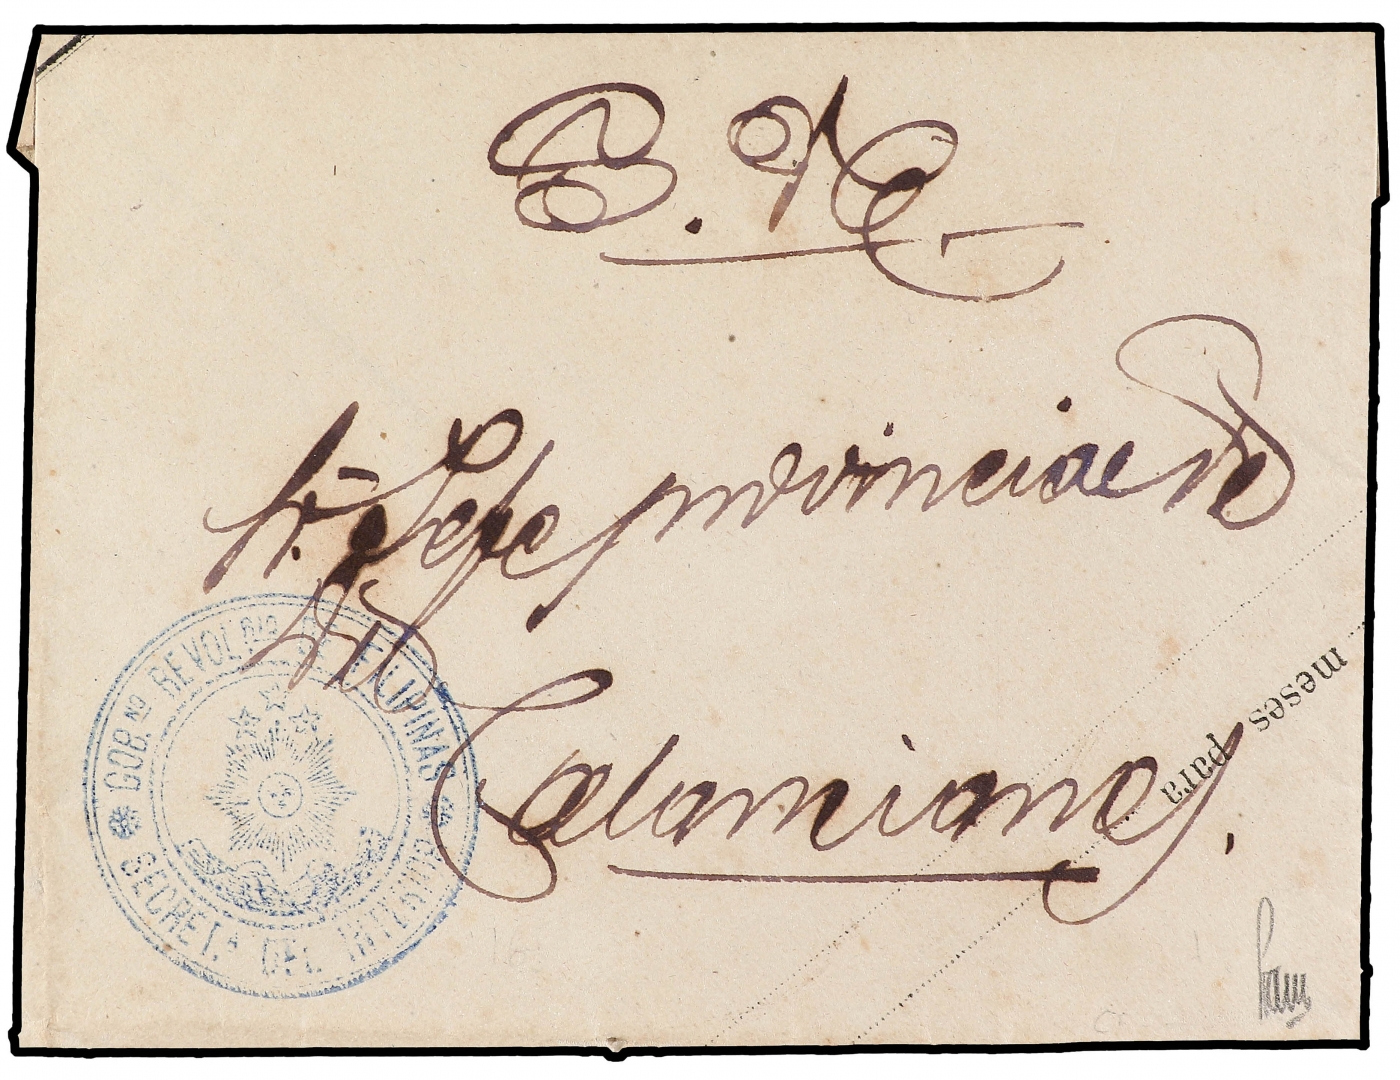 S. N.
Sr. Jefe provincial de
Calamianes.
GOB.NO REVOL.RIO DE FILIPINAS
SECRET.A DEL INTERIOR
meses para